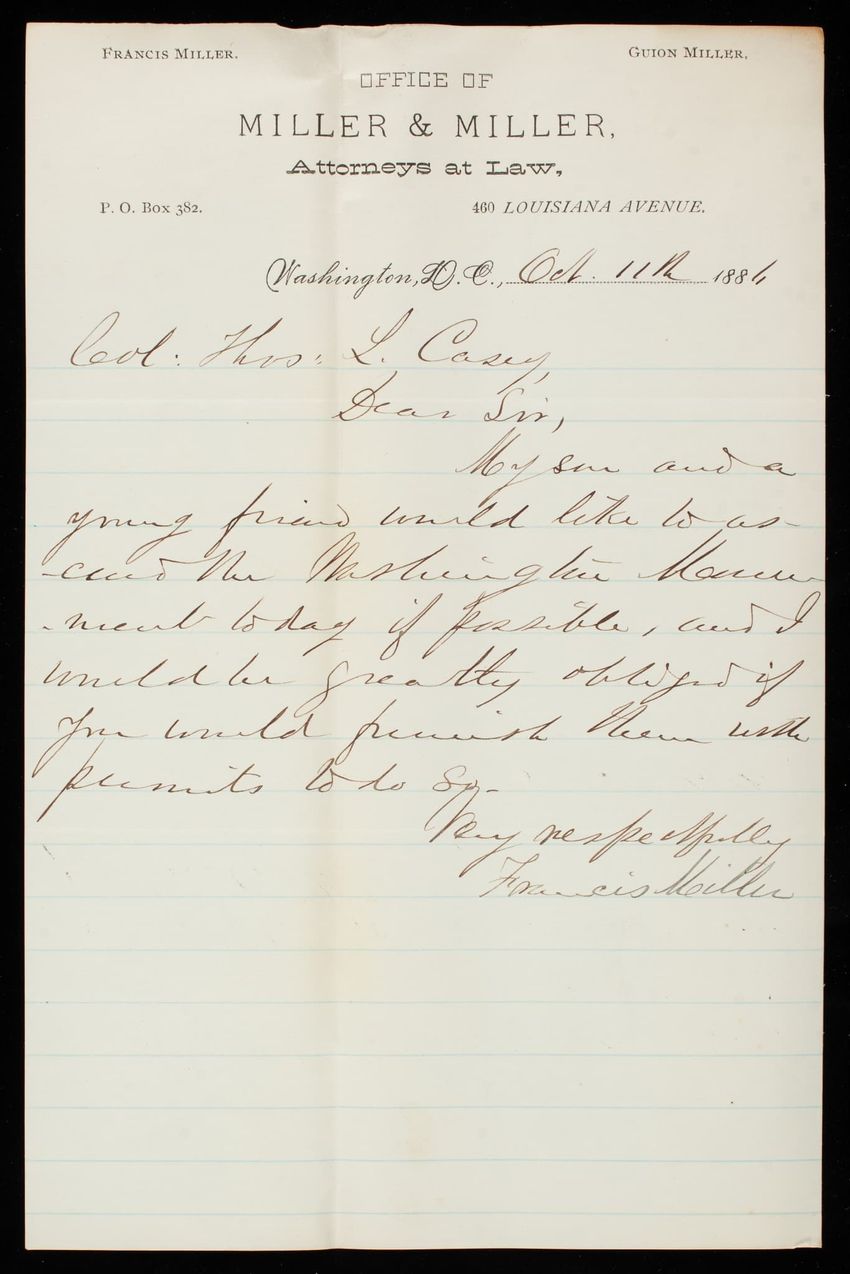 FRANCIS MILLER. GUION MILLER.
OFFICE OF
MILLER & MILLER,
Attorneys at Law,
P. O. Box 382. 460 LOUISIANA AVENUE.
Washington, D. C., Oct. 11th 1886
Col: Thos: L. Casey,
Dear Sir,
My son and a
young friend would like to as-
-cend the Washington Monu-
-ment today if possible, and I
would be greatly obliged if
you would furnish them with
permits to do so-
Very respectfully
Francis Miller